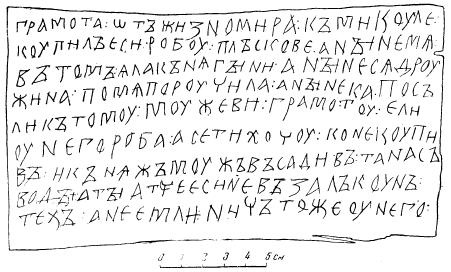 ГРАМОТА : ѠТЪ ЖИЗНОМИРА : КЪ МИКОУЛЕ :
КОУПИЛЪ ЕСИ : РОБОУ : ПЛЪСКОВЕ : А НЪІНЕ МА :
ВЪ ТОМЪ : АЛА КЪНАГЪІНИ : А НЪІНЕ СА ДРОУ
ЖИНА : ПО МА ПОРОУЧИЛА : А НЪІНЕ КА : ПОСЪ
ЛИ КЪ ТОМОУ : МОУЖЕВИ : ГРАМОТОУ : ЕЛИ
ОУ НЕГО РОБА : А СЕ ТИ ХОЧОУ : КОНЕ КОУПИ
ВЪ : И КЪНАЖЪ МОУЖЪ ВЪСАДИВЪ : ТА НА СЪ
ВОДЪІ : А ТЪІ АТЧЕ ЕСИ НЕ ВЪЗАЛЪ КОУНЪ :
ТЕХЪ : А НЕ ЕМЛИ : НИЧЪТО ЖЕ ОУ НЕГО :
0 1 2 3 4 5 см